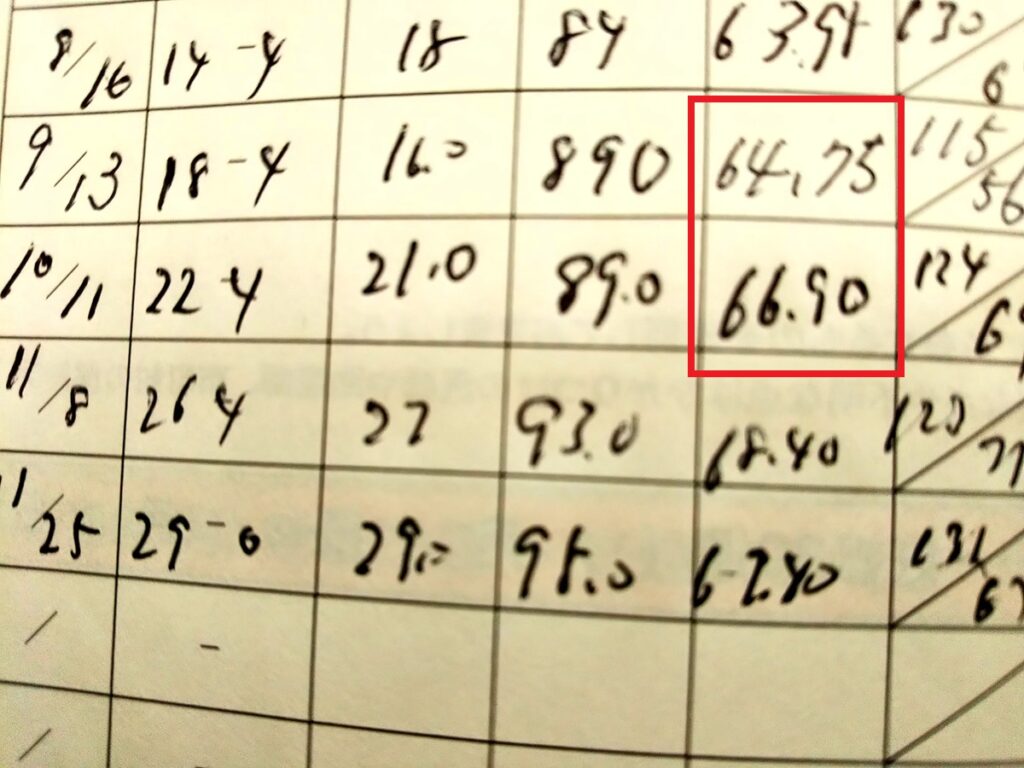 8/16 14-4 18 84 63.95 130
9/13 18-4 16.0 890 64.75 115/56
10/11 22-4 21.0 89.0 66.90 124
11/8 26 4 22 93.0 68.40 120
/25 29-0 29.0 95.0 67.40 131
/ -
/